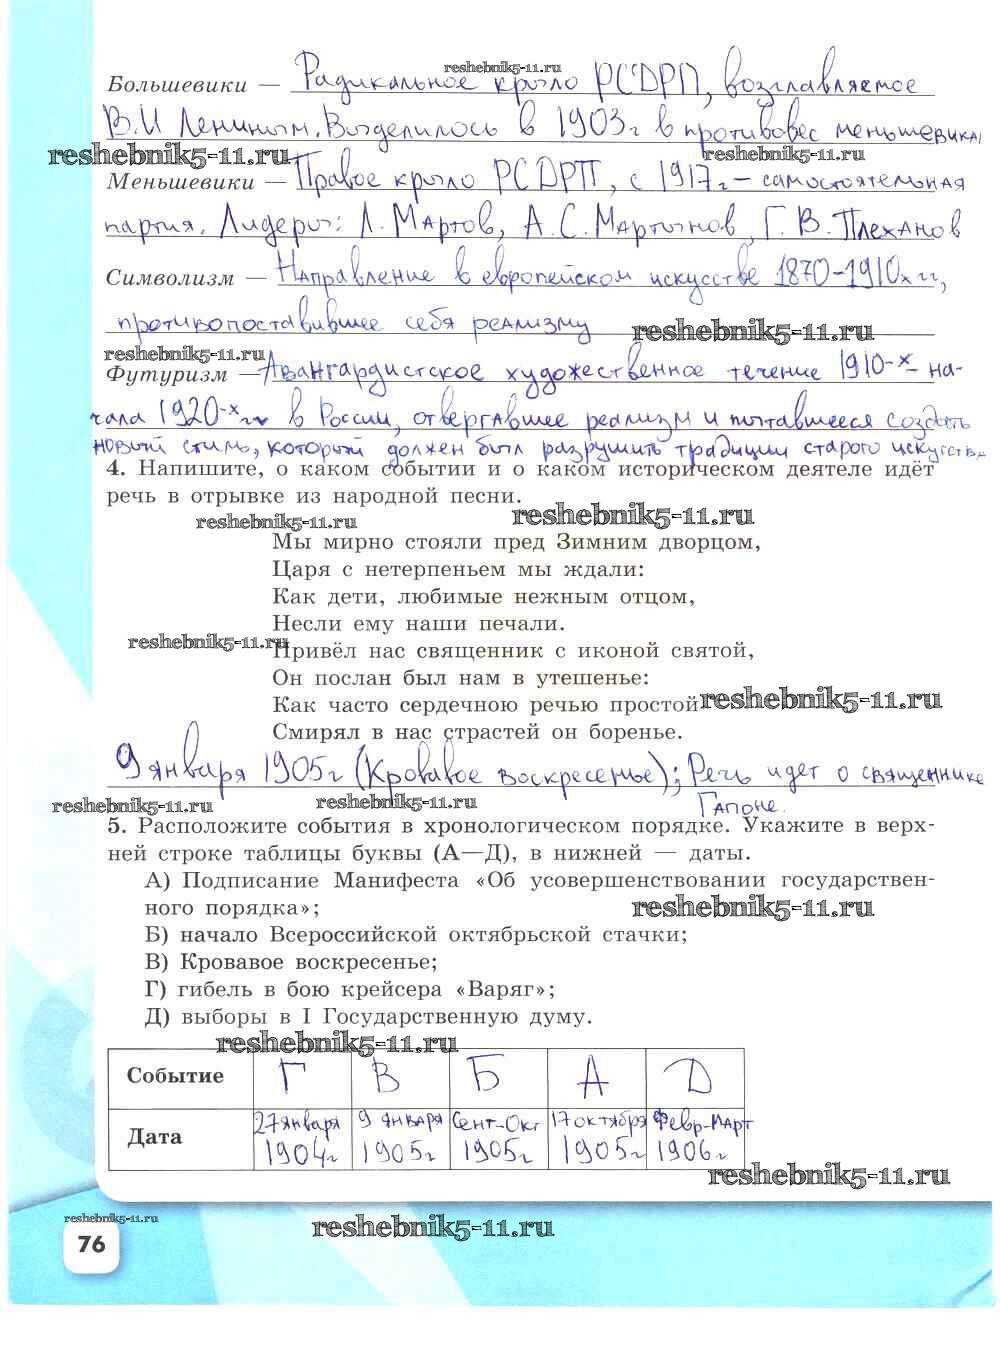 reshebnik5-11.ru
Большевики — Радикальное крыло РСДРП, возглавляемое
В.И Лениным. Выделилось в 1903г в противовес меньшевикам
reshebnik5-11.ru reshebnik5-11.ru
Меньшевики — Правое крыло РСДРП, с 1917г – самостоятельная
партия. Лидеры: Л. Мартов, А.С. Мартынов, Г.В. Плеханов
Символизм — Направление в европейском искусстве 1870-1910х гг,
противопоставившее себя реализму
reshebnik5-11.ru
reshebnik5-11.ru
Футуризм — Авангардистское художественное течение 1910-х – на-
чала 1920-х гг в России, отвергавшее реализм и пытавшееся создать
новый стиль, который должен был разрушить традиции старого искусства
4. Напишите, о каком событии и о каком историческом деятеле идёт
речь в отрывке из народной песни.
reshebnik5-11.ru reshebnik5-11.ru
Мы мирно стояли пред Зимним дворцом,
Царя с нетерпеньем мы ждали:
Как дети, любимые нежным отцом,
Несли ему наши печали.
reshebnik5-11.ru
Привёл нас священник с иконой святой,
Он послан был нам в утешенье:
Как часто сердечною речью простой
reshebnik5-11.ru
Смирял в нас страстей он боренье.
9 января 1905г (Кровавое воскресенье); Речь идет о священнике
Гапоне.
reshebnik5-11.ru reshebnik5-11.ru
5. Расположите события в хронологическом порядке. Укажите в верх-
ней строке таблицы буквы (А—Д), в нижней — даты.
А) Подписание Манифеста «Об усовершенствовании государствен-
ного порядка»;
reshebnik5-11.ru
Б) начало Всероссийской октябрьской стачки;
В) Кровавое воскресенье;
Г) гибель в бою крейсера «Варяг»;
Д) выборы в I Государственную думу.
reshebnik5-11.ru
Событие Г В Б А Д
Дата 27 января 1904г 9 января 1905г Сент-Окт 1905г 17 октября 1905г Февр-Март 1906г
reshebnik5-11.ru
reshebnik5-11.ru
reshebnik5-11.ru
76